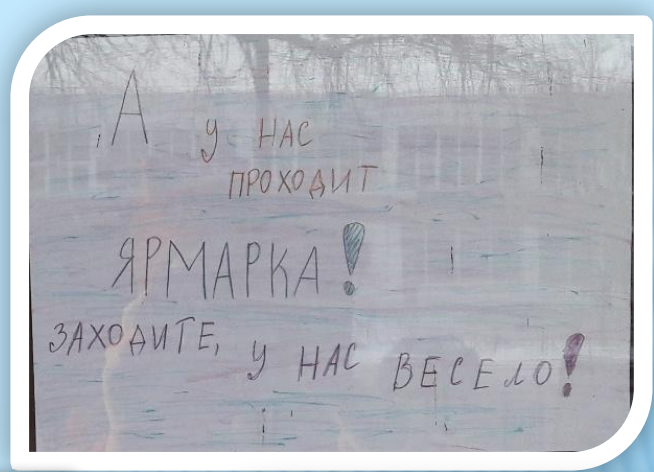 А у НАС
ПРОХОДИТ
ЯРМАРКА!
ЗАХОДИТЕ, у НАС ВЕСЕЛО!